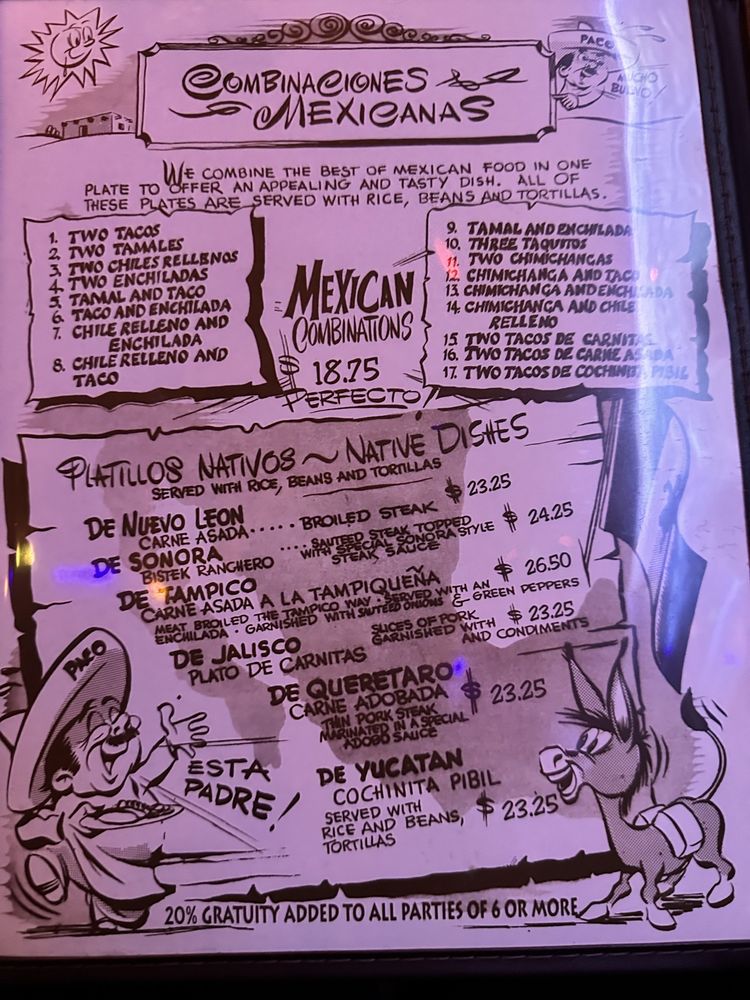 COMBINACIONES
MEXICANAS
PACO
MUCHO
BUENO!
WE COMBINE THE BEST OF MEXICAN FOOD IN ONE
PLATE TO OFFER AN APPEALING AND TASTY DISH. ALL OF
THESE PLATES ARE SERVED WITH RICE, BEANS AND TORTILLAS.
1. TWO TACOS
2. TWO TAMALES
3. TWO CHILES RELLENOS
4. TWO ENCHILADAS
5. TAMAL AND TACO
6. TACO AND ENCHILADA
7. CHILE RELLENO AND
ENCHILADA
8. CHILE RELLENO AND
TACO
MEXICAN
COMBINATIONS
$ 18.75
PERFECTO!
9. TAMAL AND ENCHILADA
10. THREE TAQUITOS
11. TWO CHIMICHANGAS
12. CHIMICHANGA AND TACO
13. CHIMICHANGA AND ENCHILADA
14. CHIMICHANGA AND CHILE
RELLENO
15. TWO TACOS DE CARNITAS
16. TWO TACOS DE CARNE ASADA
17. TWO TACOS DE COCHINITA PIBIL
PLATILLOS NATIVOS ~ NATIVE DISHES
SERVED WITH RICE, BEANS AND TORTILLAS
DE NUEVO LEON
CARNE ASADA..... BROILED STEAK $ 23.25
DE SONORA
BISTEK RANCHERO ... SAUTEED STEAK TOPPED
WITH SPECIAL SONORA STYLE
STEAK SAUCE $ 24.25
DE TAMPICO
CARNE ASADA A LA TAMPIQUEÑA $ 26.50
MEAT BROILED THE TAMPICO WAY · SERVED WITH AN
ENCHILADA · GARNISHED WITH SAUTEED ONIONS & GREEN PEPPERS
DE JALISCO
PLATO DE CARNITAS
SLICES OF PORK $ 23.25
GARNISHED WITH
AND CONDIMENTS
DE QUERETARO
CARNE ADOBADA $ 23.25
THIN PORK STEAK
MARINATED IN A SPECIAL
ADOBO SAUCE
DE YUCATAN
COCHINITA PIBIL
SERVED WITH
RICE AND BEANS, $ 23.25
TORTILLAS
PACO
ESTA
PADRE!
20% GRATUITY ADDED TO ALL PARTIES OF 6 OR MORE